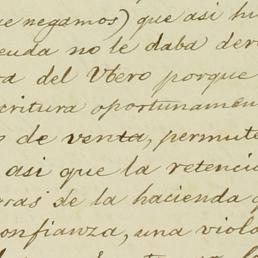 ue negamos) que asi hu
euda no le daba dere
ra del Utero porque
critura oportunamen
o de venta, permute
asi que la retenció
rras de la hacienda q
onfianza, una viola